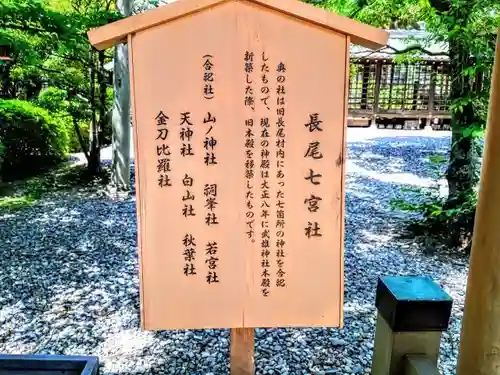 長尾七宮社
奥の社は旧長尾村内にあった七箇所の神社を合祀
したもので、現在の神殿は大正八年に武雄神社本殿を
新築した際、旧本殿を移築したものです。
（合祀社）山ノ神社 洞峯社 若宮社
天神社 白山社 秋葉社
金刀比羅社